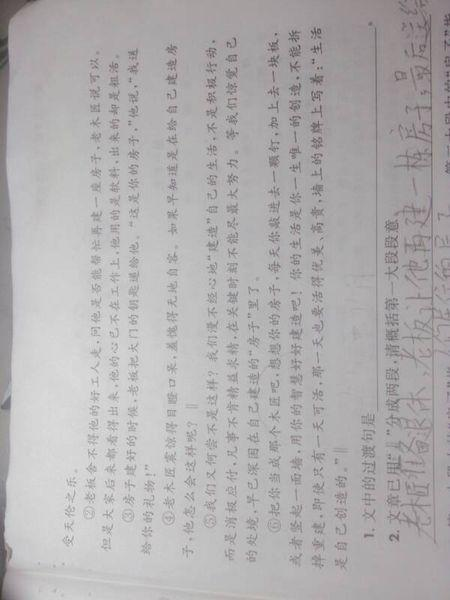 受天伦之乐。
②老板舍不得他的好工人走,问他是否能帮忙再建一座房子,老木匠说可以。
但是大家后来都看得出来,他的心已不在工作上,他用的是软料,出来的却是粗活。
③房子建好的时候,老板把大门的钥匙递给他。“这是你的房子,”他说,“我送
给你的礼物!”
④老木匠震惊得目瞪口呆,羞愧得无地自容。如果早知道是在给自己建造房
子,他怎么会这样呢?‖
⑤我们又何尝不是这样?我们漫不经心地“建造”自己的生活,不是积极行动,
而是消极应付,凡事不肯精益求精,在关键时刻不能尽最大努力。等我们惊觉自己
的处境,早已深困在自己建造的“房子”里了。
⑥把你当成那个木匠吧,想想你的房子,每天你敲进去一颗钉,加上去一块板,
或者竖起一面墙,用你的智慧好好建造吧!你的生活是你一生唯一的创造,不能拆
掉重建,即使只有一天可活,那一天也要活得优美、高贵,墙上的铭牌上写着:“生活
是自己创造的。”‖
1. 文中的过渡句是
2. 文章已用“‖”分成两段,请概括第一大段段意
老木匠准备退休,老板让他再建一栋房子,最后送给